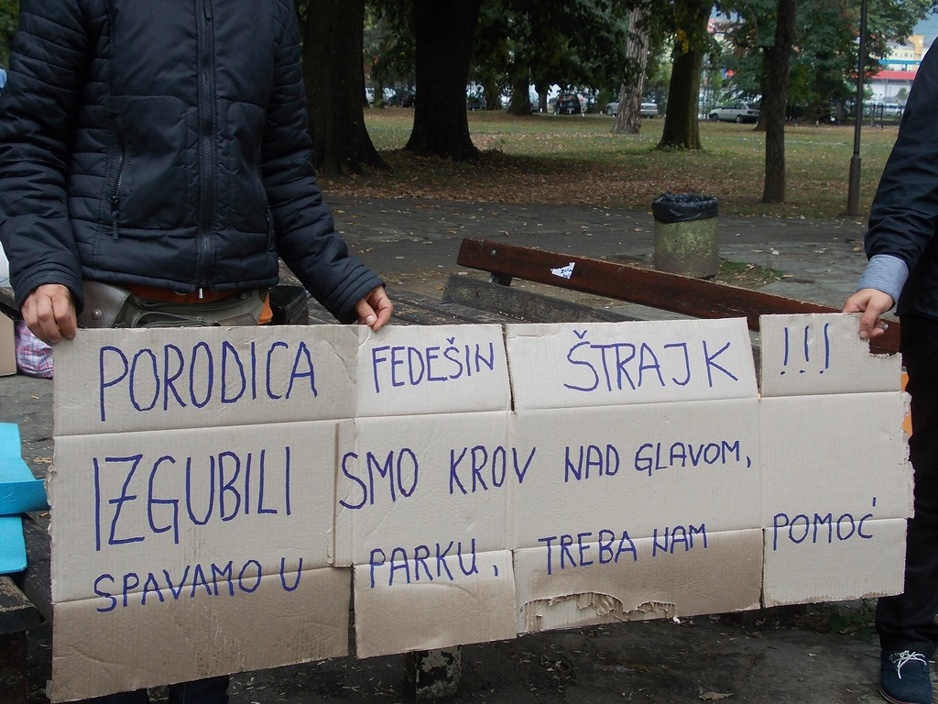 PORODICA FEDEŠIN ŠTRAJK !!!
IZGUBILI SMO KROV NAD GLAVOM,
SPAVAMO U PARKU, TREBA NAM POMOĆ